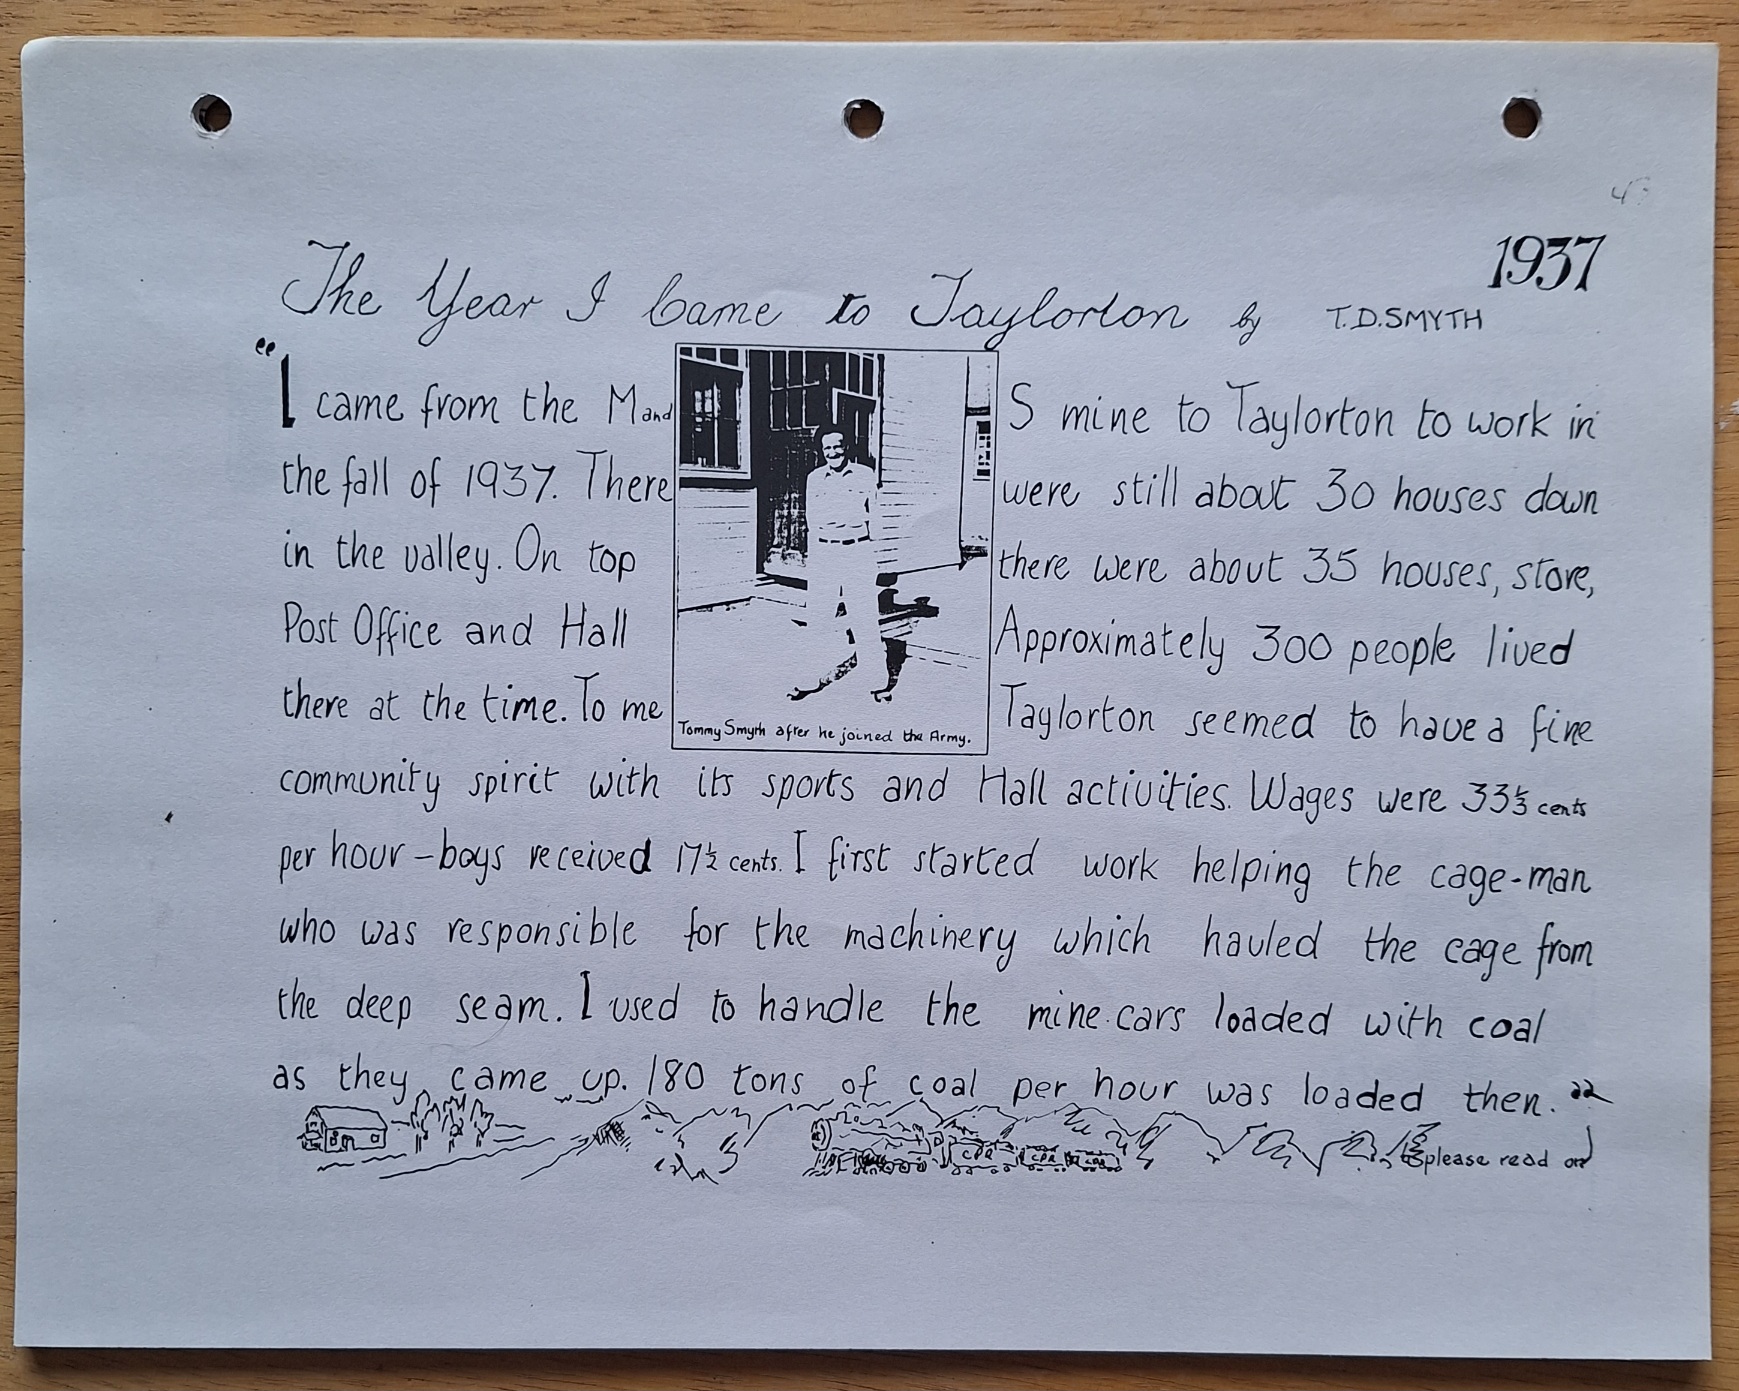 1937
The Year I Came to Taylorton by T.D.SMYTH
"I came from the M and S mine to Taylorton to work in
the fall of 1937. There were still about 30 houses down
in the valley. On top there were about 35 houses, store,
Post Office and Hall Approximately 300 people lived
there at the time. To me Taylorton seemed to have a fine
Tommy Smyth after he joined the Army.
community spirit with its sports and Hall activities. Wages were 33⅓ cents
per hour – boys received 17½ cents. I first started work helping the cage-man
who was responsible for the machinery which hauled the cage from
the deep seam. I used to handle the mine cars loaded with coal
as they came up. 180 tons of coal per hour was loaded then."
CPR CPR CPR
please read on